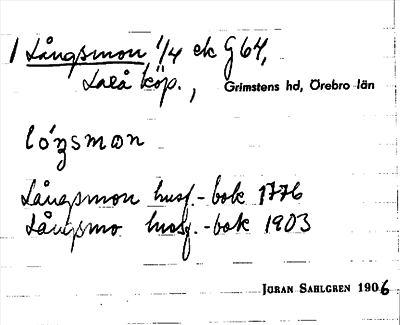 1 Långsmon, 1/4 ek G64,
Laxå köp., Grimstens hd, Örebro län
lo´ŋsmon
Långsmon husf.-bok 1776
Långsmo husf.-bok 1903
JÖRAN SAHLGREN 1906